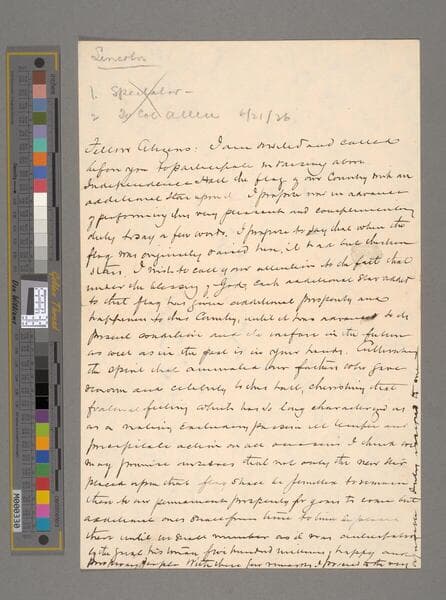 Lincoln
1. Spectator -
2 To Col Allen 6/21/36
Fellow Citizens: I am invited and called
before you to participate in raising above
Independence Hall the flag of our Country with an
additional star upon it. I propose now in advance
of performing this very pleasant and complimentary
duty to say a few words. I propose to say that when the
flag was originally raised here, it had but thirteen
stars. I wish to call your attention to the fact that
under the blessing of God, each additional star added
to that flag has given additional prosperity and
happiness to this Country, until it has advanced to its
present condition and its welfare in the future
as well as in the past is in your hands. Cultivating
the spirit that animated our fathers who gave
renown and celebrity to this hall, cherishing that
fraternal feeling which has so long characterized us
as a nation, excluding passion, ill temper and
precipitate action on all occasions I think we
may promise ourselves that not only the new star
placed upon that flag shall be permitted to remain
there to our permanent prosperity for years to come but
additional ones shall from time to time be placed
there until we shall number as it was anticipated
by the great historian five hundred millions of happy and
prosperous people With these few remarks, I proceed to the very
M000330